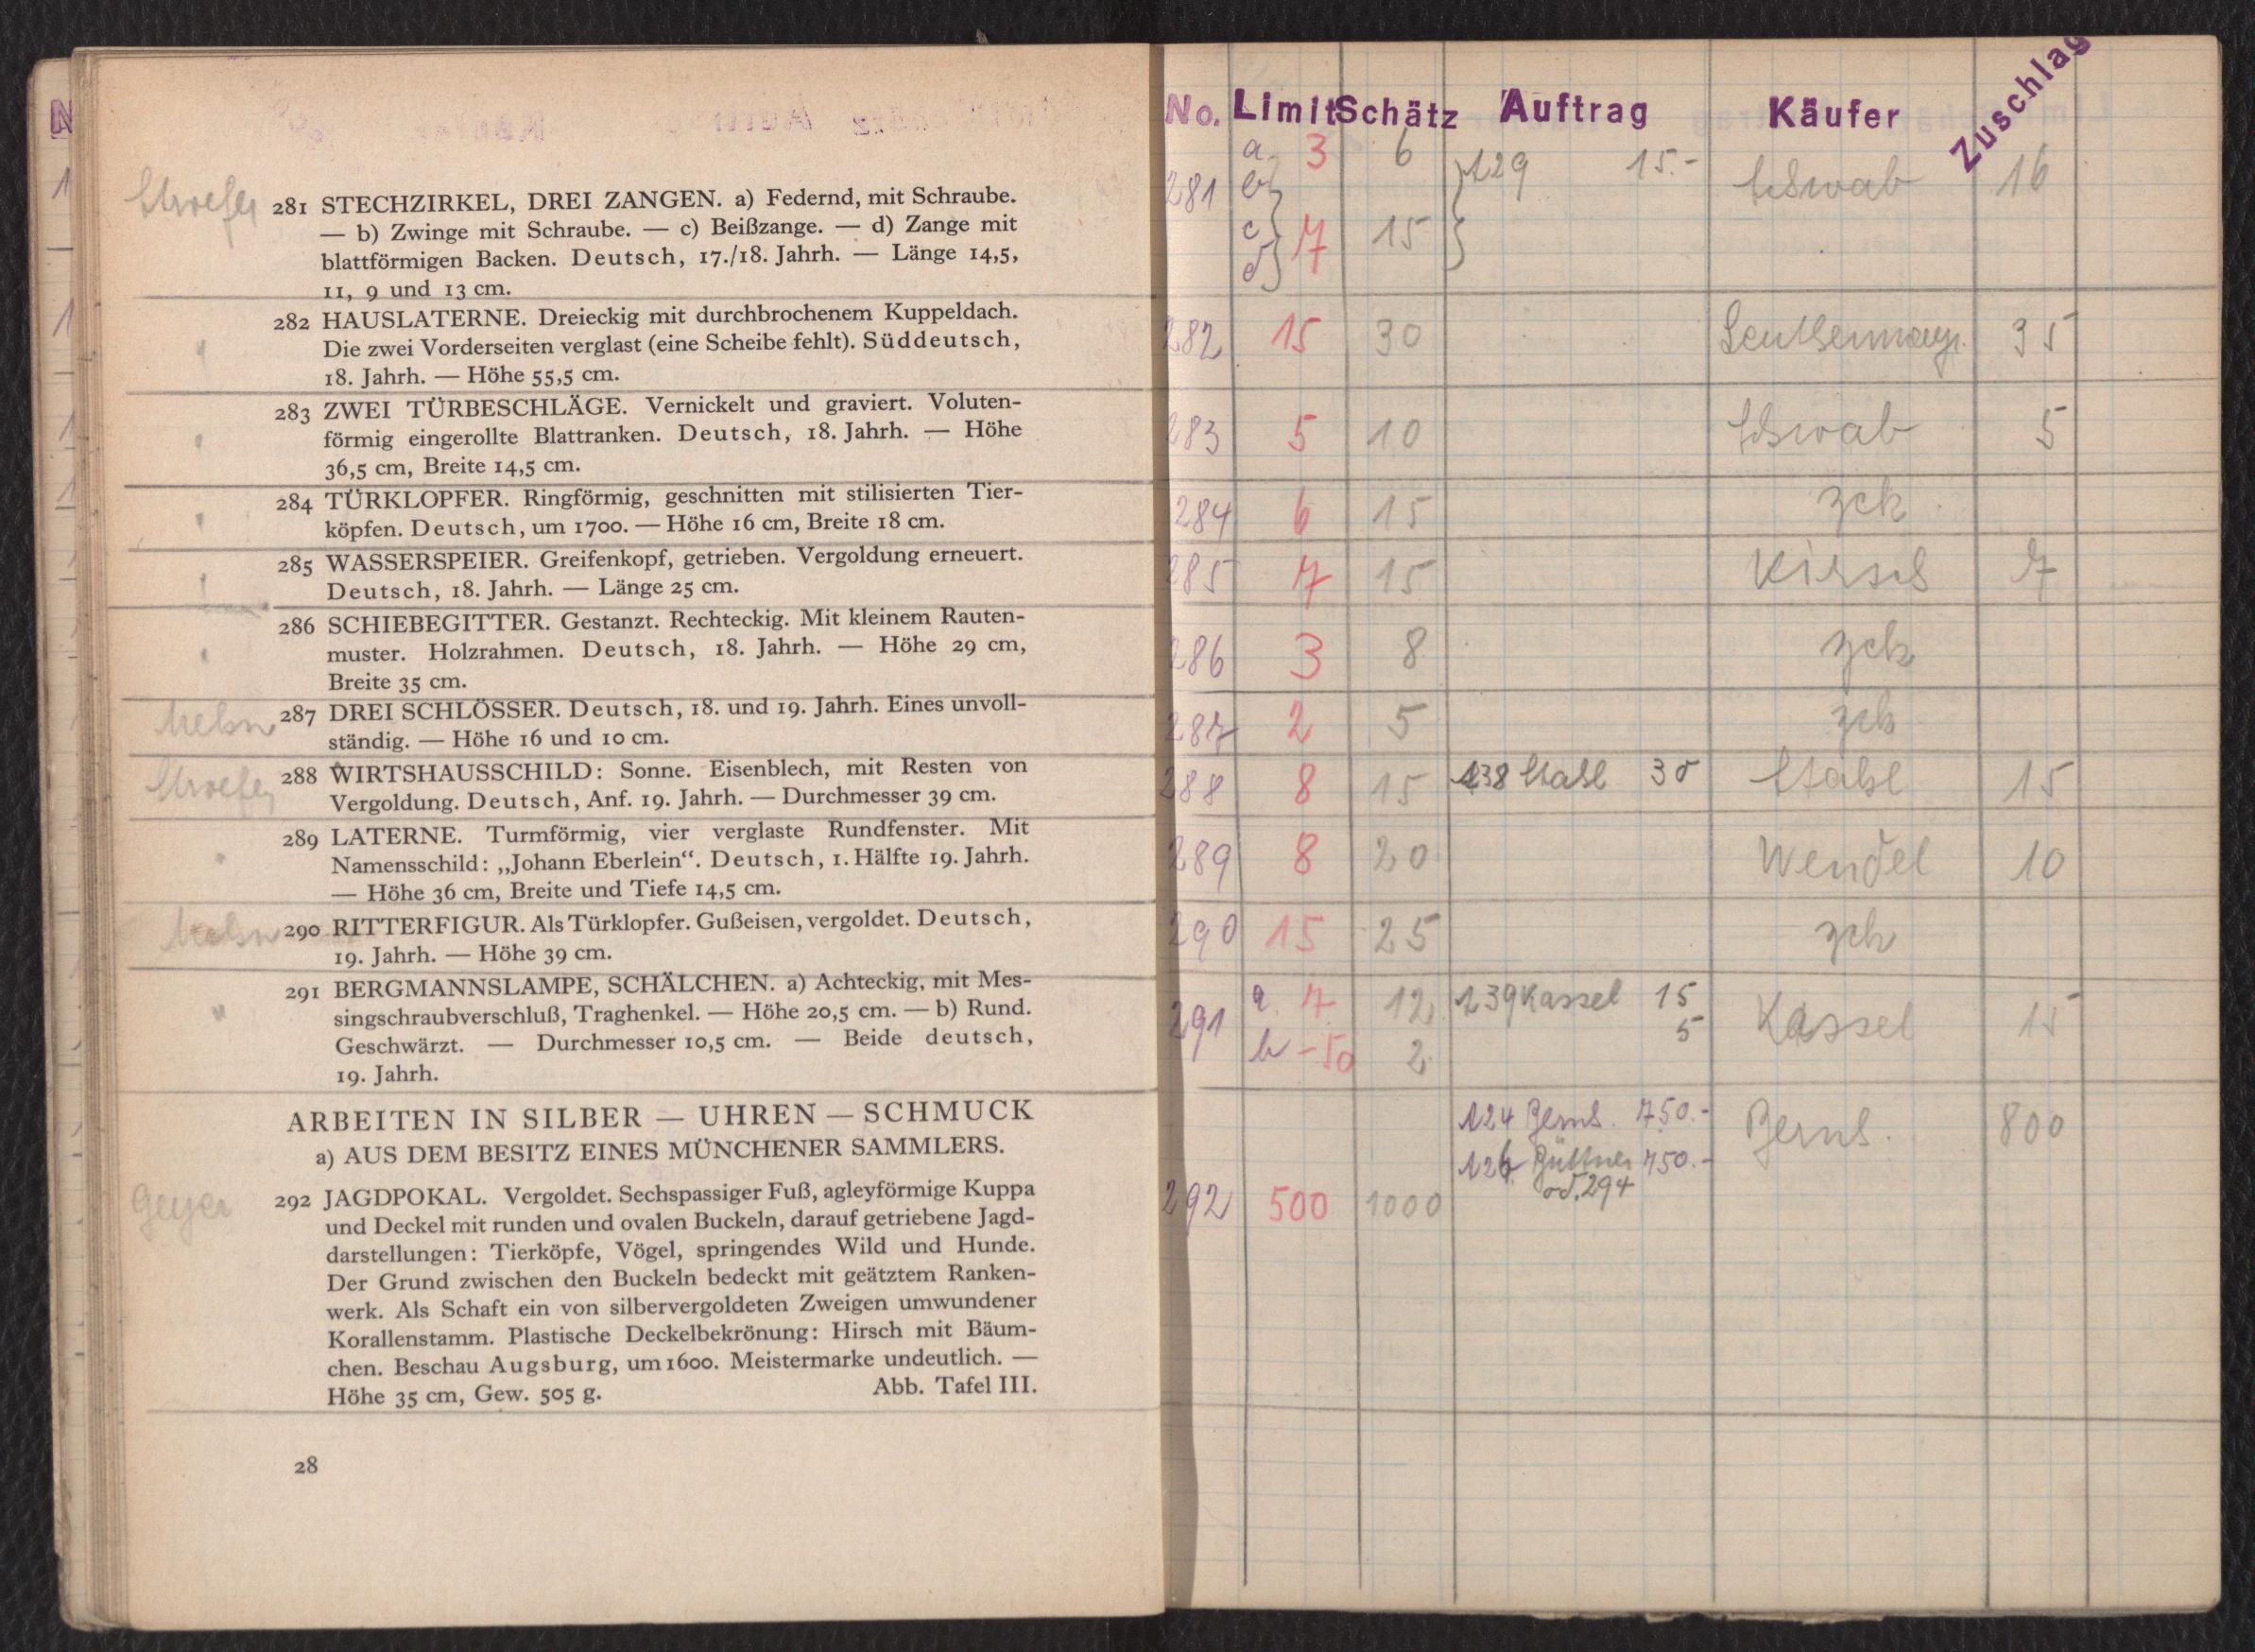 281 STECHZIRKEL, DREI ZANGEN. a) Federnd, mit Schraube.
— b) Zwinge mit Schraube. — c) Beißzange. — d) Zange mit
blattförmigen Backen. Deutsch, 17./18. Jahrh. — Länge 14,5,
11, 9 und 13 cm.
282 HAUSLATERNE. Dreieckig mit durchbrochenem Kuppeldach.
Die zwei Vorderseiten verglast (eine Scheibe fehlt). Süddeutsch,
18. Jahrh. — Höhe 55,5 cm.
283 ZWEI TÜRBESCHLÄGE. Vernickelt und graviert. Voluten-
förmig eingerollte Blattranken. Deutsch, 18. Jahrh. — Höhe
36,5 cm, Breite 14,5 cm.
284 TÜRKLOPFER. Ringförmig, geschnitten mit stilisierten Tier-
köpfen. Deutsch, um 1700. — Höhe 16 cm, Breite 18 cm.
285 WASSERSPEIER. Greifenkopf, getrieben. Vergoldung erneuert.
Deutsch, 18. Jahrh. — Länge 25 cm.
286 SCHIEBEGITTER. Gestanzt. Rechteckig. Mit kleinem Rauten-
muster. Holzrahmen. Deutsch, 18. Jahrh. — Höhe 29 cm,
Breite 35 cm.
287 DREI SCHLÖSSER. Deutsch, 18. und 19. Jahrh. Eines unvoll-
ständig. — Höhe 16 und 10 cm.
288 WIRTSHAUSSCHILD: Sonne. Eisenblech, mit Resten von
Vergoldung. Deutsch, Anf. 19. Jahrh. — Durchmesser 39 cm.
289 LATERNE. Turmförmig, vier verglaste Rundfenster. Mit
Namensschild: „Johann Eberlein“. Deutsch, 1. Hälfte 19. Jahrh.
— Höhe 36 cm, Breite und Tiefe 14,5 cm.
290 RITTERFIGUR. Als Türklopfer. Gußeisen, vergoldet. Deutsch,
19. Jahrh. — Höhe 39 cm.
291 BERGMANNSLAMPE, SCHÄLCHEN. a) Achteckig, mit Mes-
singschraubverschluß, Traghenkel. — Höhe 20,5 cm. — b) Rund.
Geschwärzt. — Durchmesser 10,5 cm. — Beide deutsch,
19. Jahrh.
ARBEITEN IN SILBER — UHREN — SCHMUCK
a) AUS DEM BESITZ EINES MÜNCHENER SAMMLERS.
Geyer 292 JAGDPOKAL. Vergoldet. Sechspassiger Fuß, agleyförmige Kuppa
und Deckel mit runden und ovalen Buckeln, darauf getriebene Jagd-
darstellungen: Tierköpfe, Vögel, springendes Wild und Hunde.
Der Grund zwischen den Buckeln bedeckt mit geätztem Ranken-
werk. Als Schaft ein von silbervergoldeten Zweigen umwundener
Korallenstamm. Plastische Deckelbekrönung: Hirsch mit Bäum-
chen. Beschau Augsburg, um 1600. Meistermarke undeutlich. —
Höhe 35 cm, Gew. 505 g. Abb. Tafel III.
28
No. Limit Schätz Auftrag Käufer Zuschlag
a 3 6 129 15.-
281 b Schwab 16
c 7 15
d
282 15 30 35
283 5 10 Schwab 5
284 6 15 zck
285 7 15 Kirsch 7
286 3 8 zck
287 2 5 zck
288 8 15 138 Stahl 30 Stahl 15
289 8 20 Wendel 10
290 15 25 zck
291 a. 7 12 139 Kassel 15 Kassel 15
b -50 2 5
124 Bernh. 750.- Bernh. 800
126 Büttner 750.-
od. 294
292 500 1000